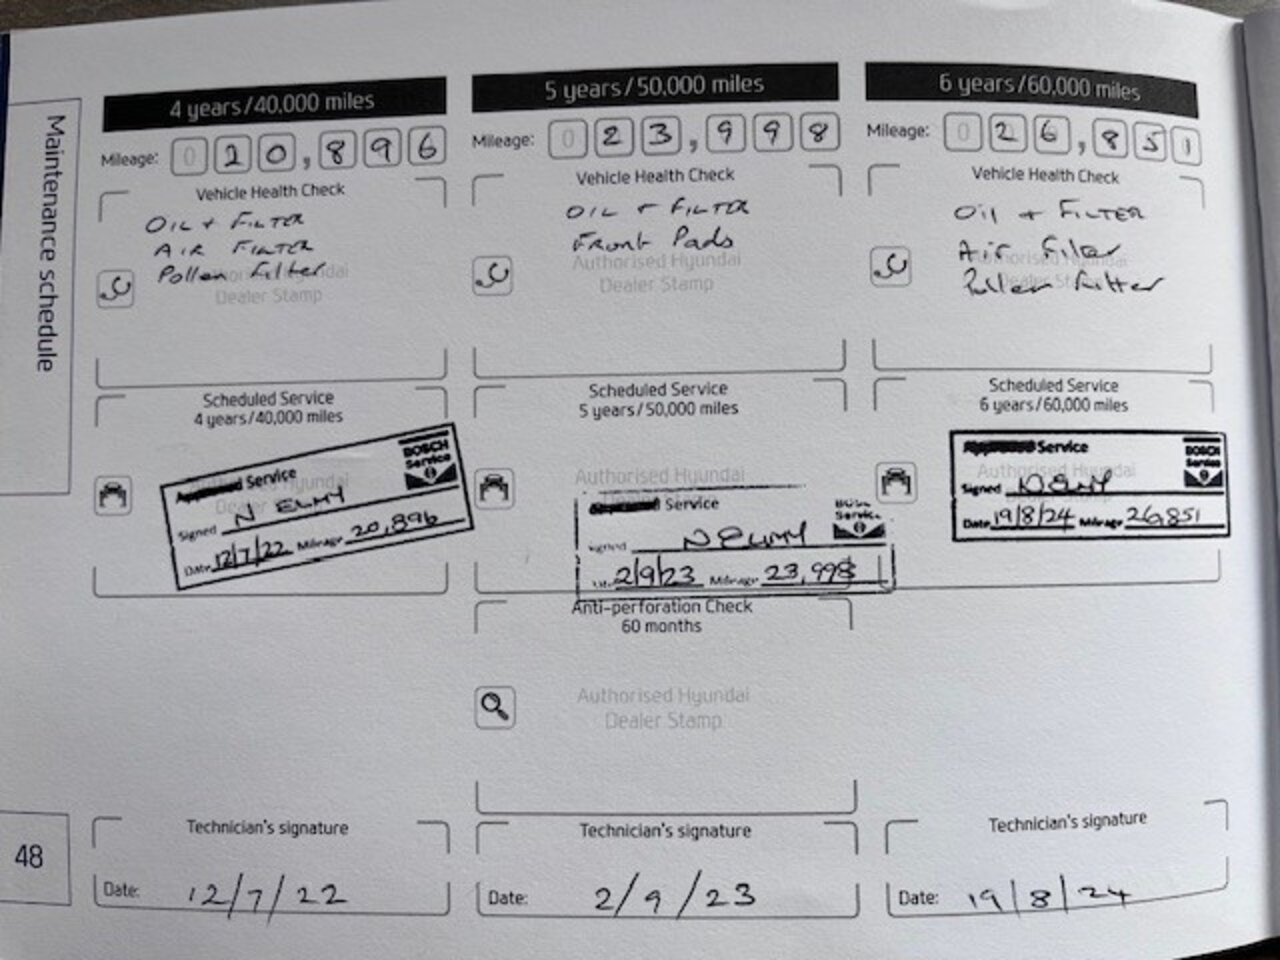 Maintenance schedule
4 years/40,000 miles
Mileage: 020,896
Vehicle Health Check
OIL + FILTER
AIR FILTER
Pollen Filter
Dealer Stamp
Scheduled Service
4 years/40,000 miles
Service
BOSCH
Service
Signed N ELMY
Date 12/7/22 Mileage 20,896
Technician's signature
Date: 12/7/22
5 years/50,000 miles
Mileage: 023,998
Vehicle Health Check
OIL + FILTER
Front Pads
Authorised Hyundai
Dealer Stamp
Scheduled Service
5 years/50,000 miles
Authorised Hyundai
Service
Service
Signed N ELMY
2/9/23 Mileage 23,998
Anti-perforation Check
60 months
Authorised Hyundai
Dealer Stamp
Technician's signature
Date: 2/9/23
6 years/60,000 miles
Mileage: 026,851
Vehicle Health Check
Oil + FILTER
Air Filer
Pollen Filter
Scheduled Service
6 years/60,000 miles
Service
BOSCH
Service
Authorised Hyundai
Signed N ELMY
Date 19/8/24 Mileage 26,851
Technician's signature
Date: 19/8/24
48